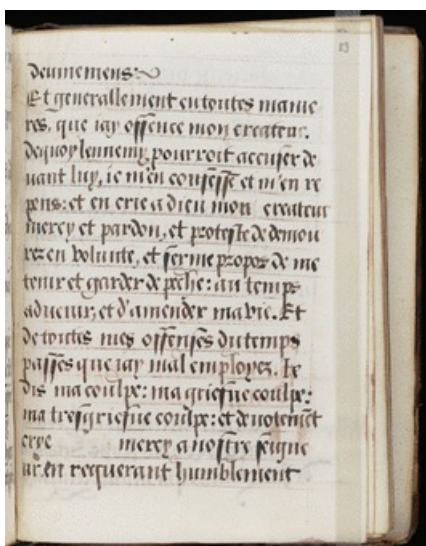 13
deuinemens:~
Et generallement en toutes manie
res, que iay offence mon createur.
Dequoy lennemy pourroit accuser de
uant luy, ie m'en confesse et m'en re
pens: et en crie a dieu mon createur
mercy et pardon, et proteste de demou
rer en volunte, et ferme propos de me
tenir et garder de peche: au temps
aduenir, et d'amender ma vie. Et
de toutes mes offenses du temps
passes que iay mal employez. Ie
dis ma coulpe: ma griefue coulpe:
ma tresgriefue coulpe: et deuotement
crye mercy a nostre seigne
ur, en requerant humblement